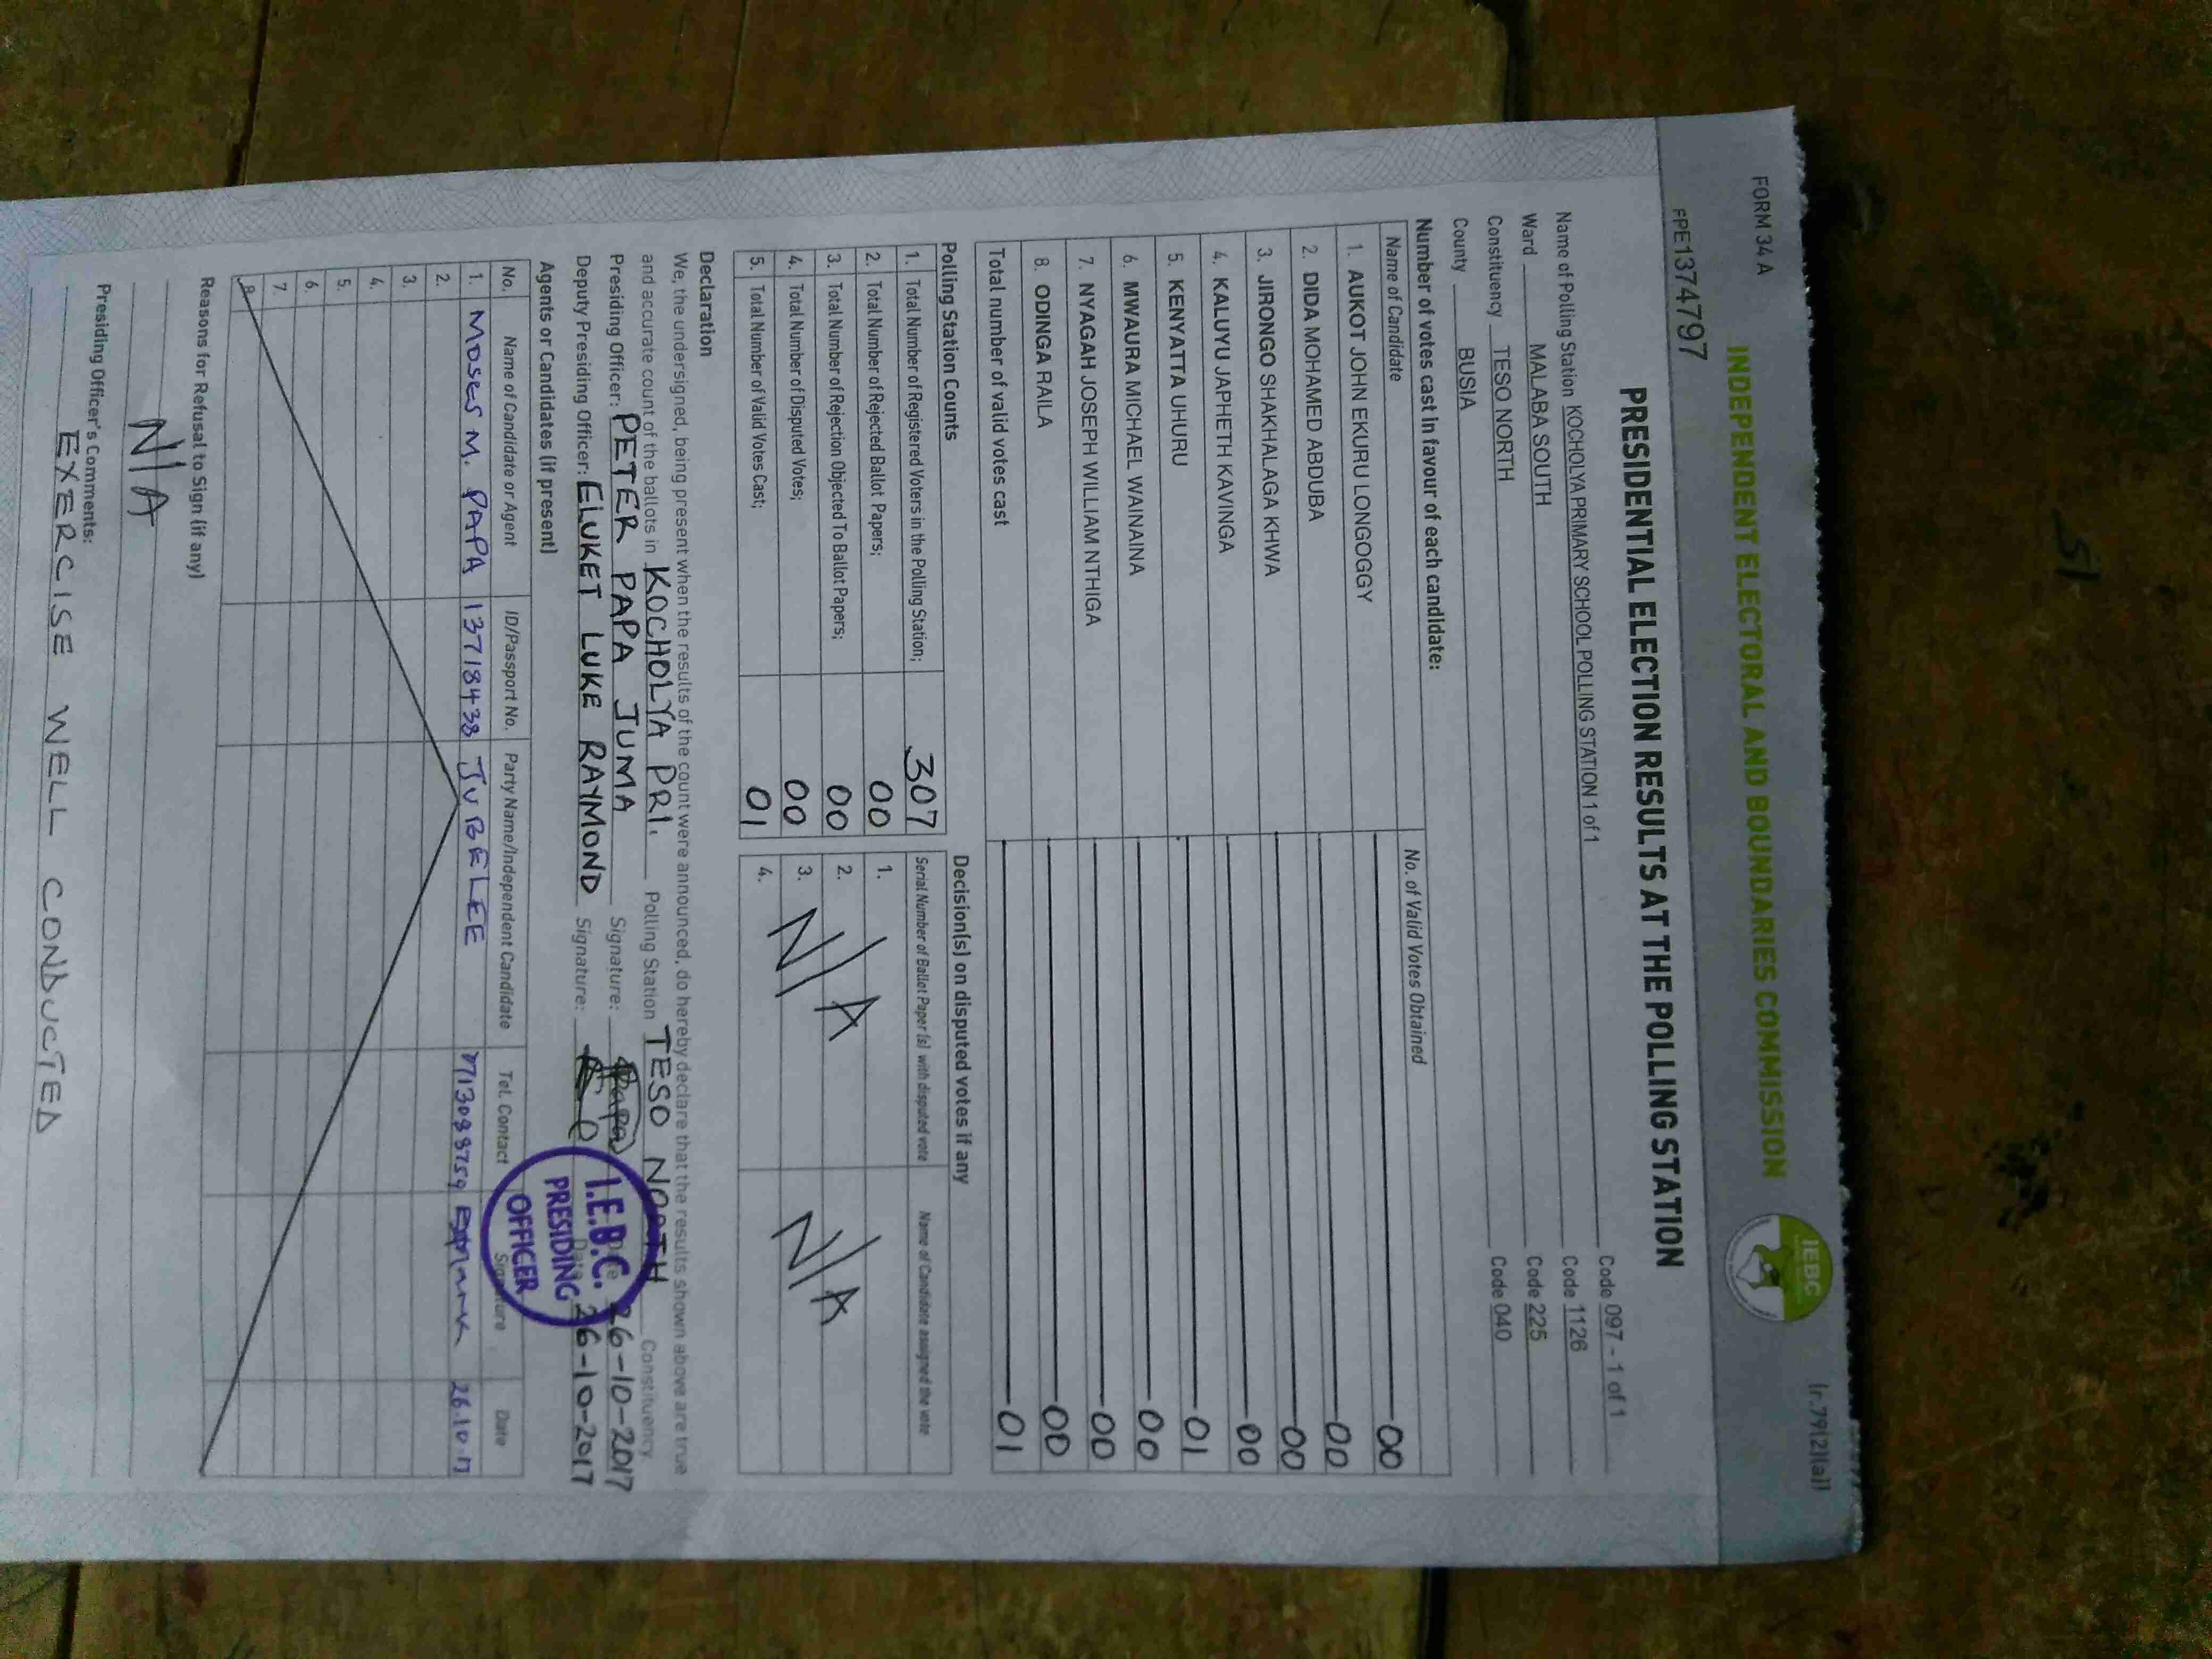 FORM 34 A
[r.79(2)(a)]
INDEPENDENT ELECTORAL AND BOUNDARIES COMMISSION
IEBC
FPE1374797
PRESIDENTIAL ELECTION RESULTS AT THE POLLING STATION
Name of Polling Station KOCHOLYA PRIMARY SCHOOL POLLING STATION 1 of 1 Code 097 - 1 of 1
Ward MALABA SOUTH Code 1126
Constituency TESO NORTH Code 225
County BUSIA Code 040
Number of votes cast in favour of each candidate:
Name of Candidate No. of Valid Votes Obtained
1. AUKOT JOHN EKURU LONGOGGY 00
2. DIDA MOHAMED ABDUBA 00
3. JIRONGO SHAKHALAGA KHWA 00
4. KALUYU JAPHETH KAVINGA 00
5. KENYATTA UHURU 01
6. MWAURA MICHAEL WAINAINA 00
7. NYAGAH JOSEPH WILLIAM NTHIGA 00
8. ODINGA RAILA 00
Total number of valid votes cast 01
Polling Station Counts
1. Total Number of Registered Voters in the Polling Station; 307
2. Total Number of Rejected Ballot Papers; 00
3. Total Number of Rejection Objected To Ballot Papers; 00
4. Total Number of Disputed Votes; 00
5. Total Number of Valid Votes Cast; 01
Decision(s) on disputed votes if any
Serial Number of Ballot Paper (s) with disputed vote Name of Candidate assigned the vote
1.
2.
3.
4.
N/A N/A
Declaration
We, the undersigned, being present when the results of the count were announced, do hereby declare that the results shown above are true
and accurate count of the ballots in KOCHOLYA PRI. Polling Station TESO NORTH Constituency
Presiding Officer: PETER PAPA JUMA Signature: Papa Date 26-10-2017
Deputy Presiding Officer: ELUKET LUKE RAYMOND Signature: Date 26-10-2017
I.E.B.C.
PRESIDING
OFFICER
Agents or Candidates (if present)
No. Name of Candidate or Agent ID/Passport No. Party Name/Independent Candidate Tel. Contact Signature Date
1. MOSES M. PAPA 13718438 JUBELEE 26.10.17
2.
3.
4.
5.
6.
7.
8.
Reasons for Refusal to Sign (if any)
N/A
Presiding Officer's Comments:
EXERCISE WELL CONDUCTED
51